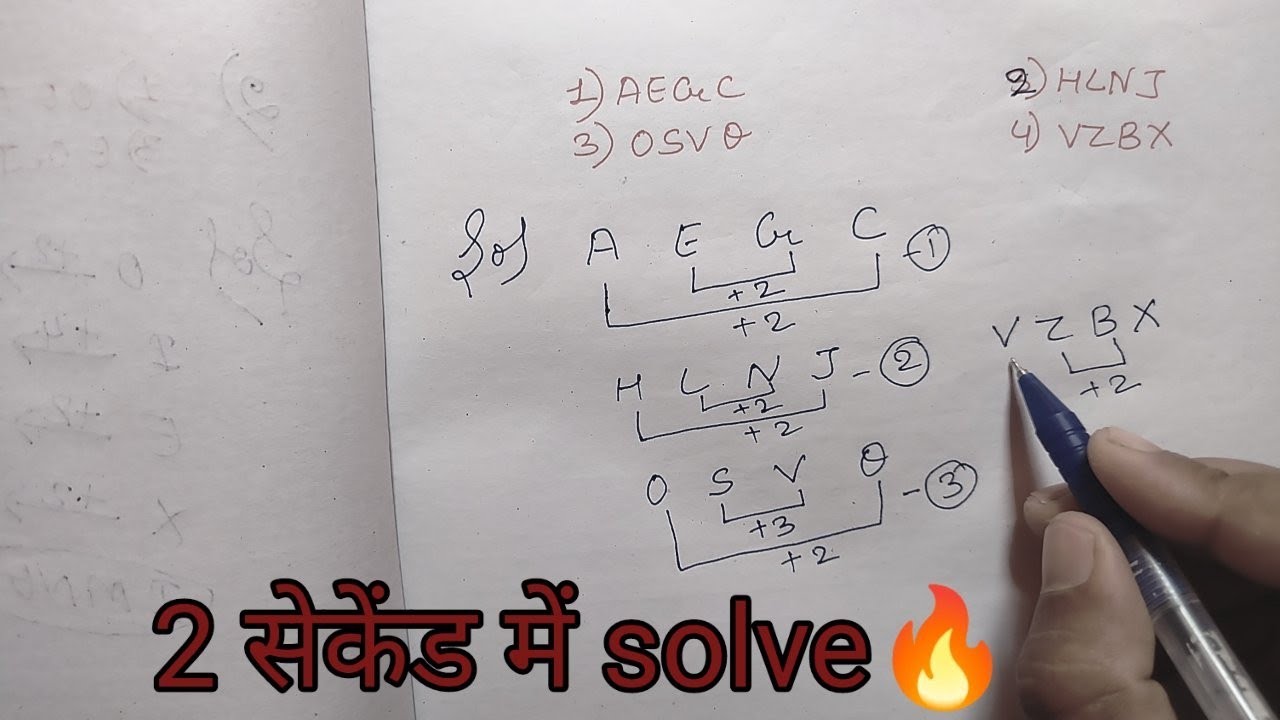 1) AEGC 2) HLNJ
3) OSVQ 4) VZBX
Sol A E G C - 1
+2
+2
H L N J - 2
+2
+2
V Z B X
+2
O S V Q - 3
+3
+2
2 सेकेंड में solve🔥